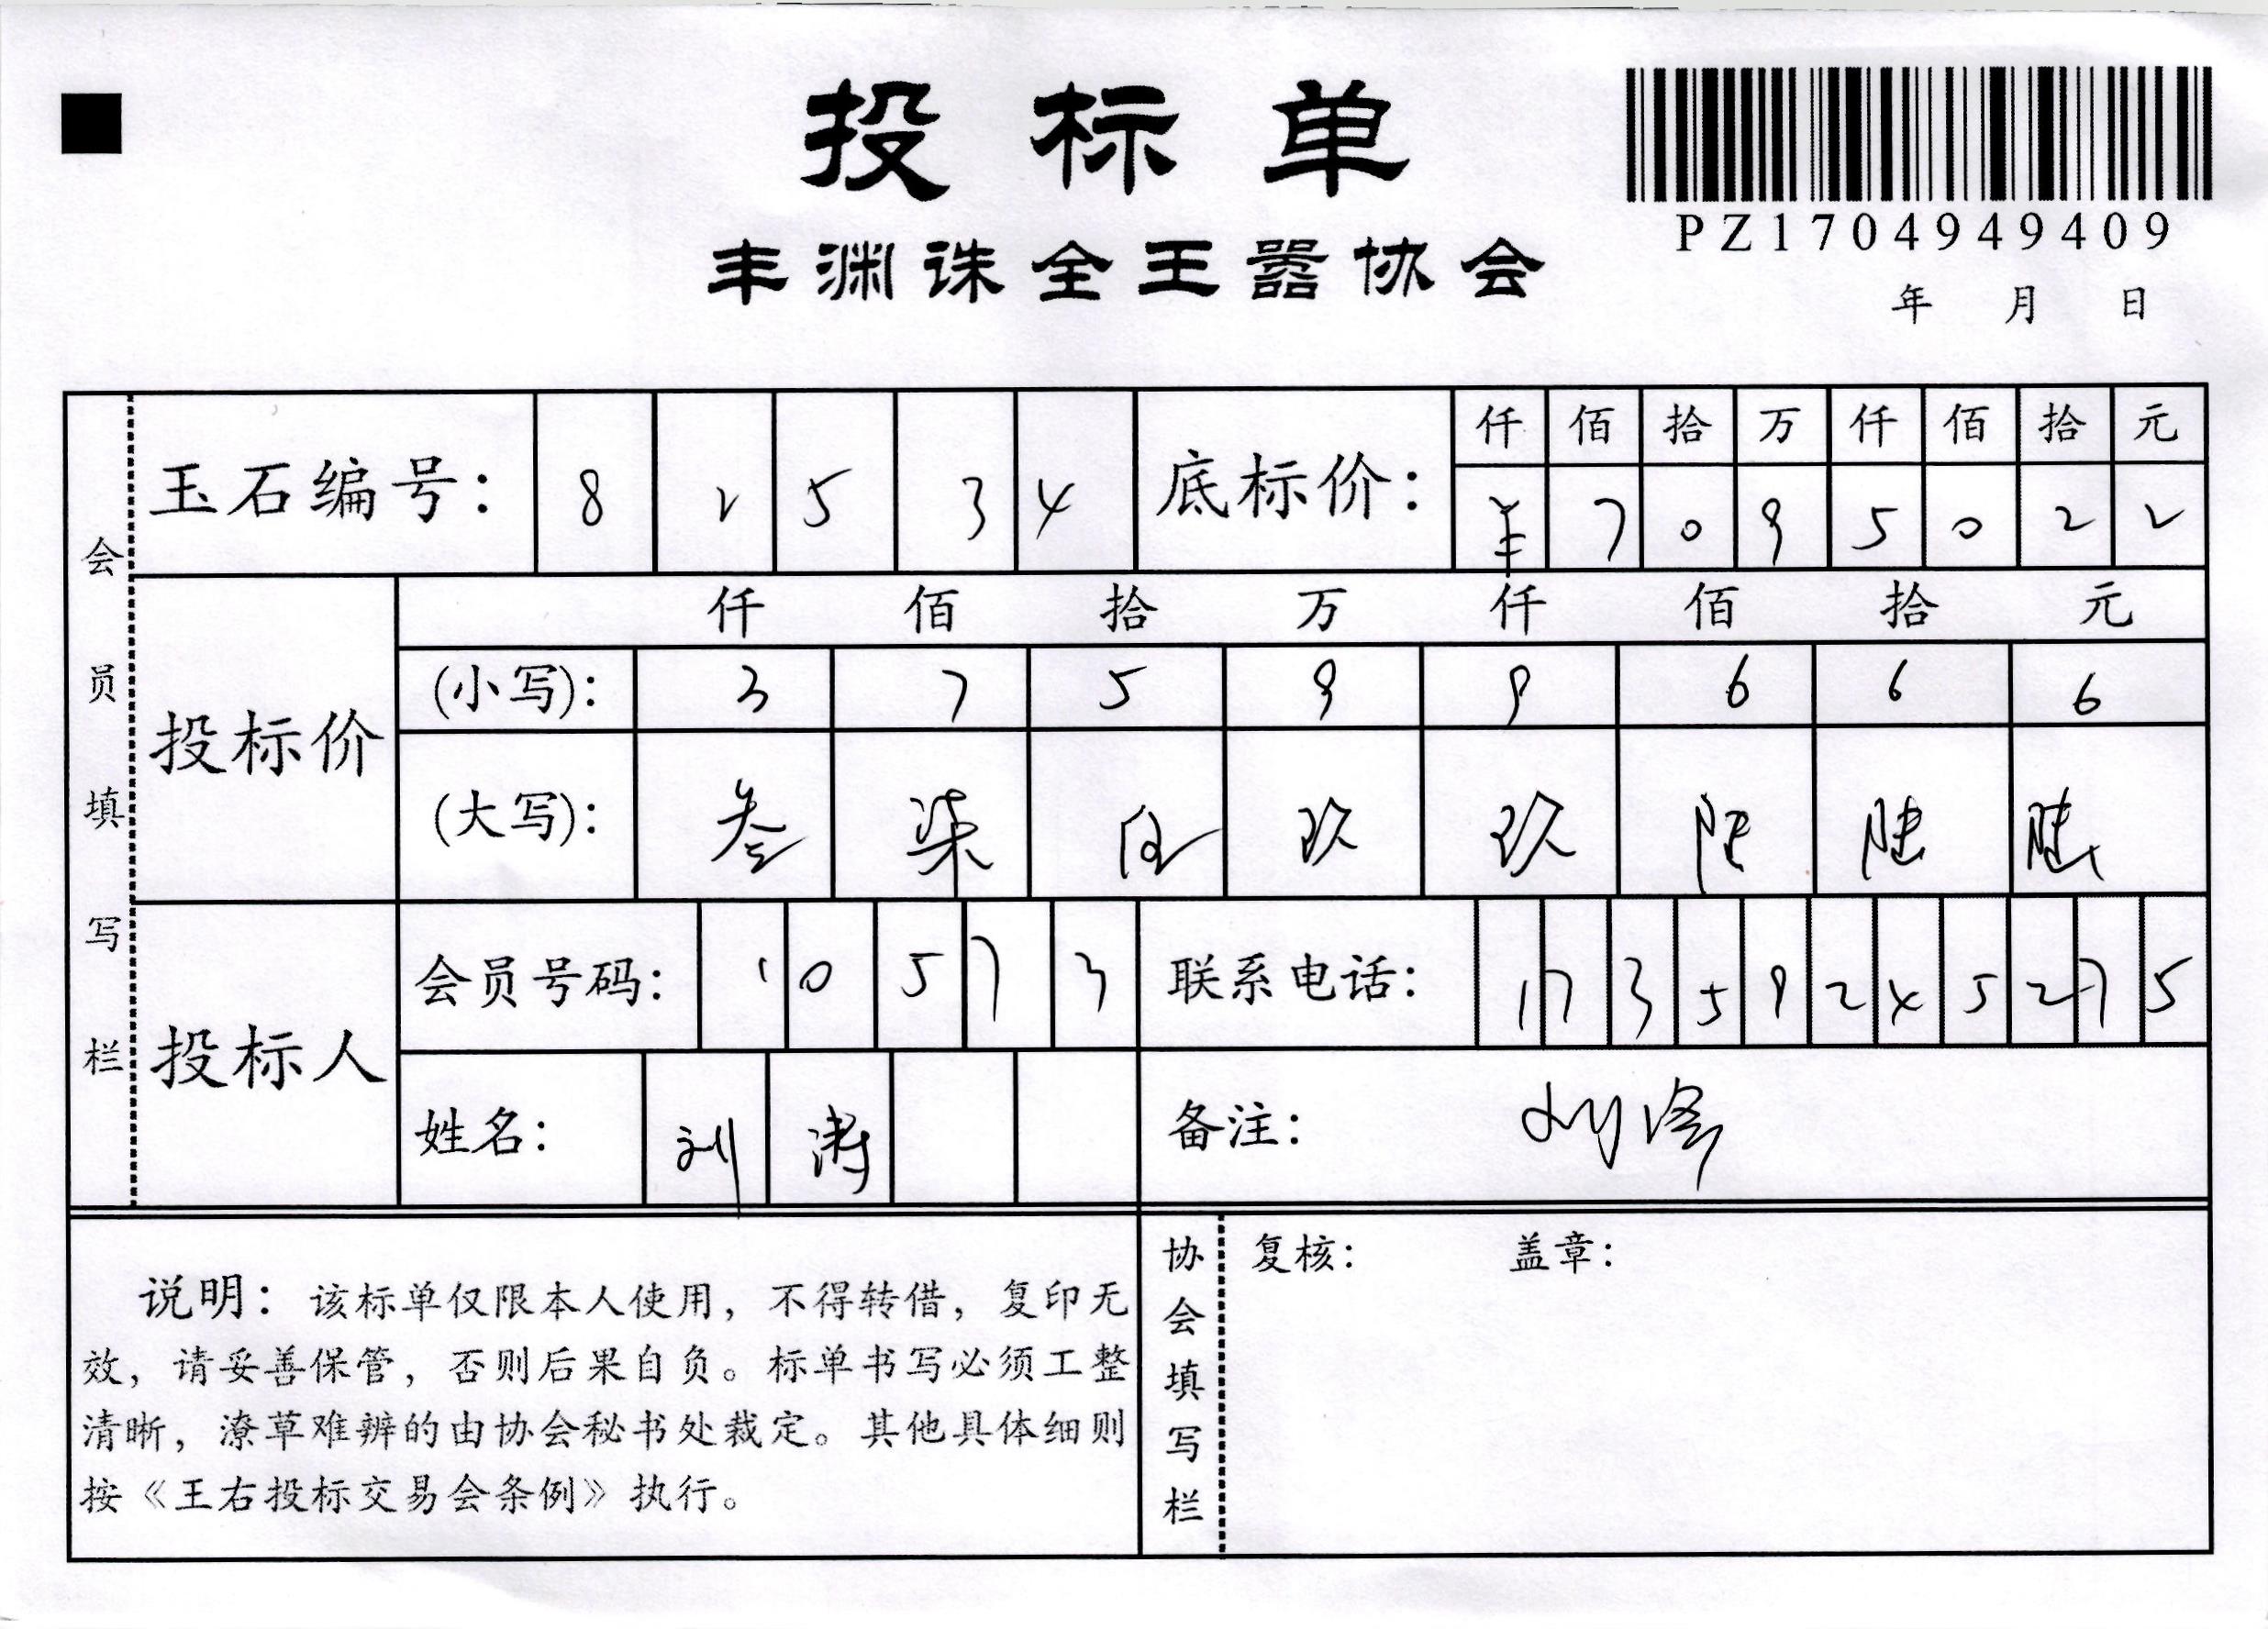 投标单
PZ1704949409
丰渊诛全王嚣协会
年 月 日
会员填写栏
玉石编号: 8 2 5 3 4
底标价: 仟 佰 拾 万 仟 佰 拾 元
¥ 7 0 9 5 0 2 2
投标价
仟 佰 拾 万 仟 佰 拾 元
(小写): 3 7 5 9 9 6 6 6
(大写): 叁 柒 伍 玖 玖 陆 陆 陆
投标人
会员号码: 1 0 5 7 3
联系电话: 1 7 3 5 9 2 4 5 2 7 5
姓名: 刘 涛
备注:
说明: 该标单仅限本人使用, 不得转借, 复印无
效, 请妥善保管, 否则后果自负。标单书写必须工整
清晰, 潦草难辨的由协会秘书处裁定。其他具体细则
按《王右投标交易会条例》执行。
协会填写栏
复核: 盖章: